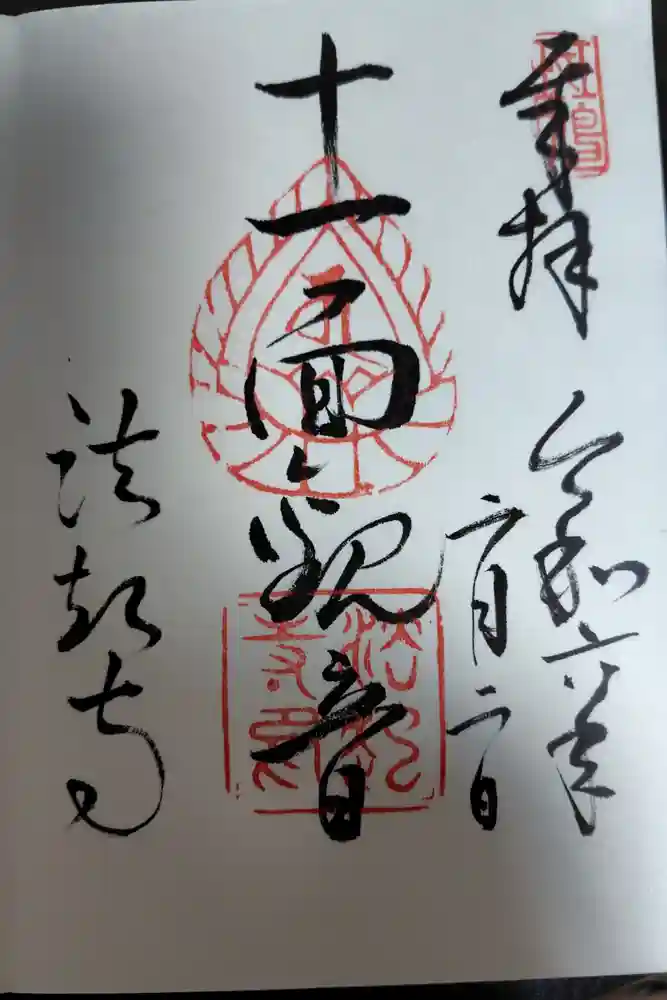 斑鳩
奉拝
令和六年
二月二日
十一面観音
法起寺